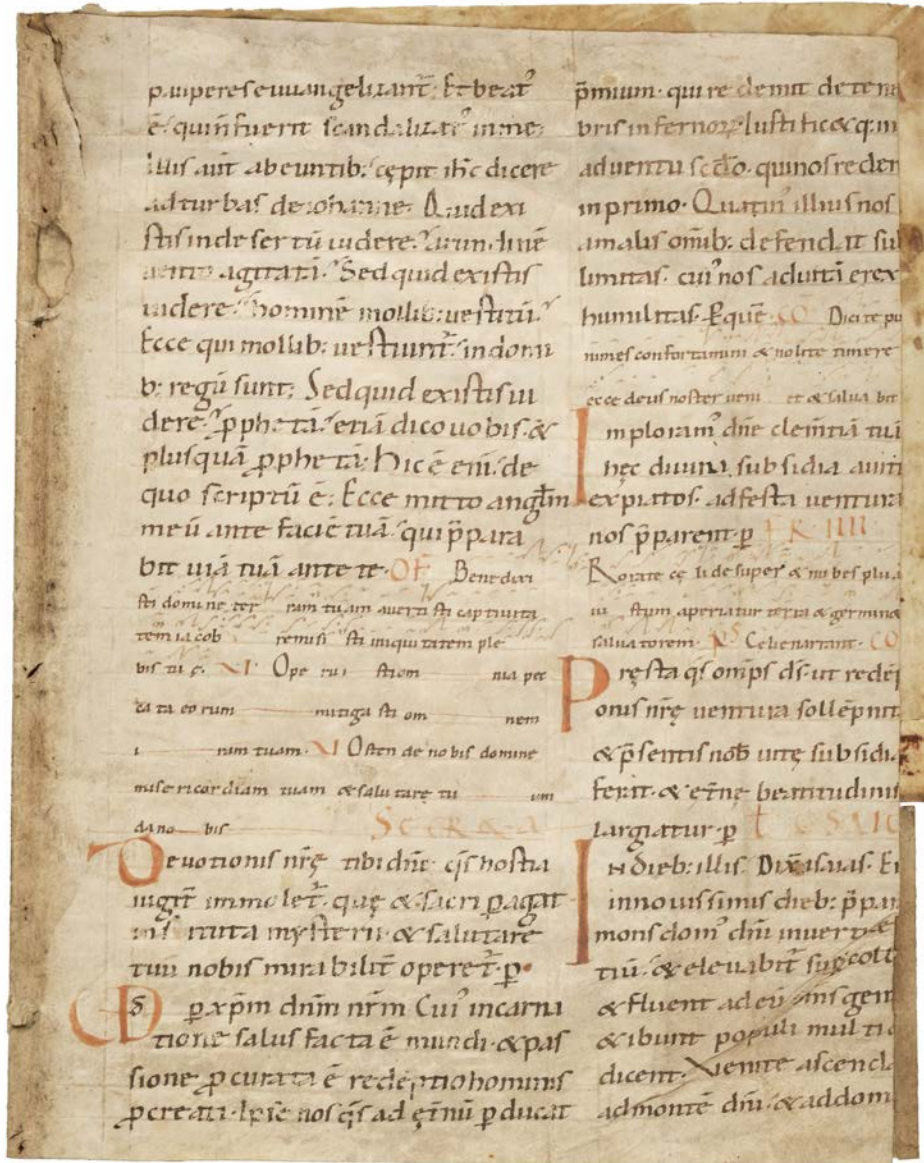 pauperes euuangelizant᷑. Et beat᷒
ē. qui n̄ fuerit scandalizat᷒ in me.
Illis aut̄ abeuntib; cępit ih̄c dicere
ad turbas de iohanne. Quid exi
stis in desertū uidere? arundinē
uento agitatā? Sed quid existis
uidere? hominē mollib; uestitū?
Ecce qui mollib; uestiunt᷑. in domi
b; regū sunt. Sed quid existis ui
dere? ꝓphetā? etiā dico uobis. &
plusquā ꝓphetā. Hic ē eni. de
quo scriptū ē. Ecce mitto angl̄m
meū ante faciē tuā. qui p̄para
bit uiā tuā ante te. OF Benedixi
sti domine ter ram tuam auerti sti captiuita
tem iacob remisi sti iniquitatem ple
bis tu ę. Ope rui sti om nia pec
ca ta eo rum mitiga sti om nem
i ram tuam. Osten de nobis domine
mise ricordiam tuam & saluta rę tu um
da no bis SECRETA
Deuotionis nr̄ę tibi dn̄e qs̄ hostia
iugit̄ immolet᷑. quę & sacri ꝑagat
instituta mysterii. & salutare
tuū nobis mirabilit̄ operet᷑. ꝑ.
ꝑ xp̄m dn̄m nr̄m Cui᷒ incarna
tione salus facta ē mundi. & pas
sione ꝓcurata ē redēptio hominis
ꝓcreati. Ipse nos qs̄ ad ęt̄nū ꝑducat
p̄mium. qui redemit de tene
bris infernoꝝ. Iustificęq; in
aduentu sc̄do. qui nos redem
in primo. Quatin᷒ illius nos
a malis omīb; defendat sub
limitas. cui᷒ nos ad uitā erex
humilitas. Et quē CO Dicite pu
nimes confortamini & nolite timere
ecce deus noster ueni et & salua bit
Imploram᷒ dn̄e clem̄tiā tuā
hęc diuina subsidia a uiti
expiatos. ad festa uentura
nos p̄parent. ꝑ FR IIII
Rorate cę li desuper & nubes plua
iu stum aperiatur terra & germine
saluatorem. PS Celi enarrant. CO
Pręsta qs̄ om̄ps ds̄. ut redēp
tionis nr̄ę uentura sollēpnit
& p̄sentis nob̄ uitę subsidi
ferat. & et̄nę beatitudinis
largiatur. ꝑ
In dieb; illis. Dix̄ isaias. Er
in nouissimis dieb; p̄par
mons dom᷒ dn̄i in uertice
tiū. & eleuabit᷑ suꝑ coll
& fluent ad eū om̄s gen
& ibunt populi multi &
dicent. Venite ascenda
ad montē dn̄i. & ad dom